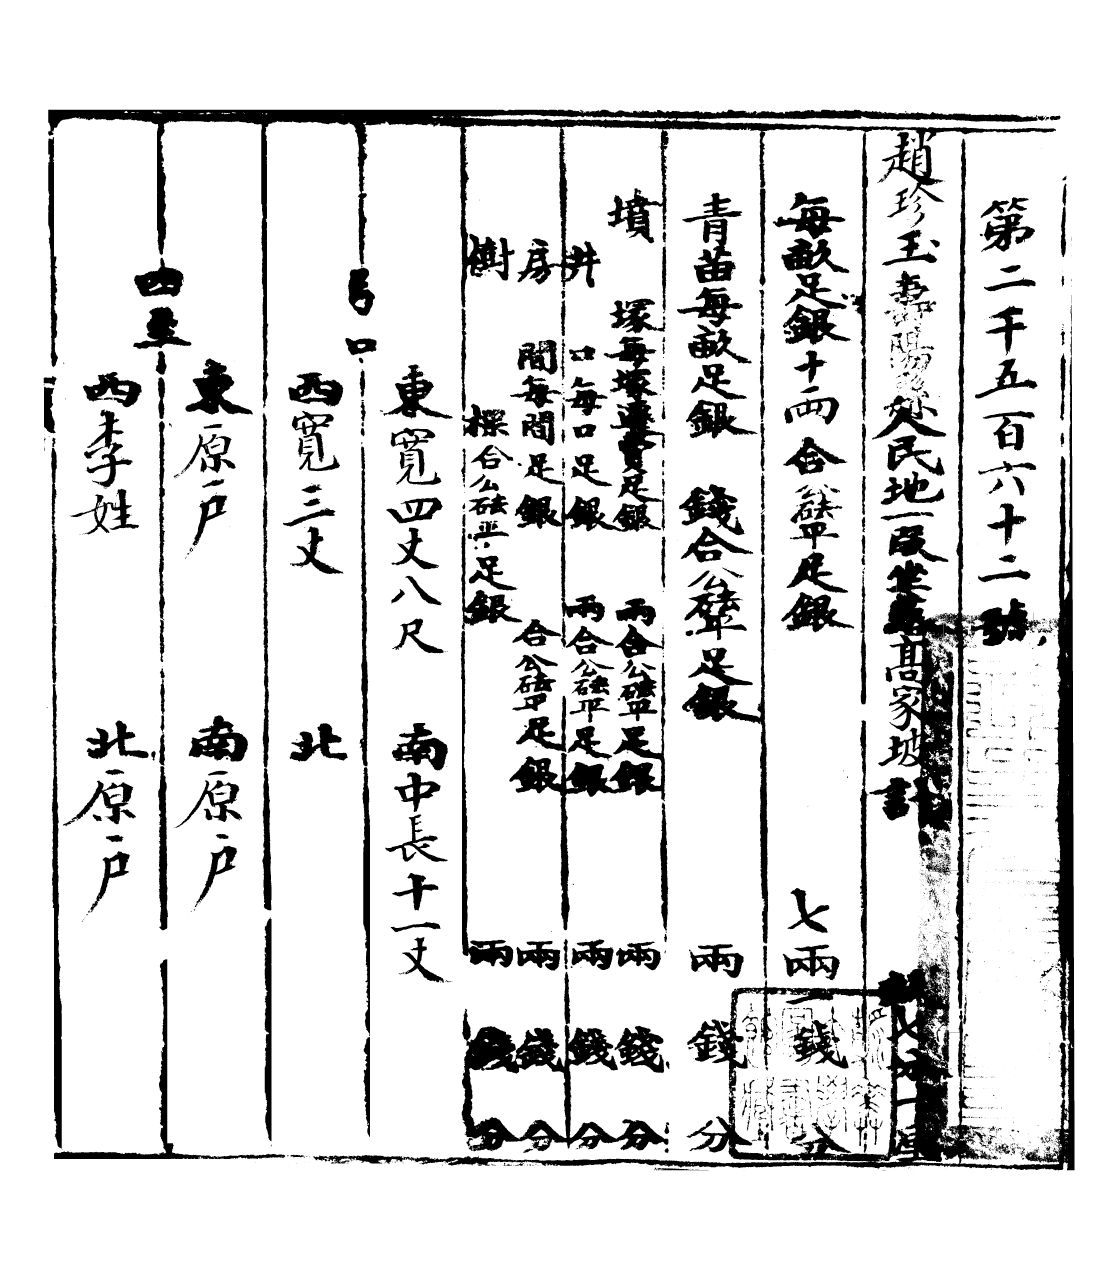 第二千五百六十二號
趙珍玉壽陽縣民地一段坐落高家坡計 七分一厘
每畝足銀十一兩 合公砝平足銀 七兩一錢 分
青苗每畝足銀 錢合公砝平足銀 兩 錢 分
墳 塚每塚遷費足銀 兩合公砝平足銀 兩 錢 分
井 口每口足銀 兩合公砝平足銀 兩 錢 分
房 間每間足銀 合公砝平足銀 兩 錢 分
樹 合公砝平足銀 兩 錢 分
東寬四丈八尺 南中長十一丈
弓口
西寬三丈 北
東原戶 南原戶
四至
西李姓 北原戶